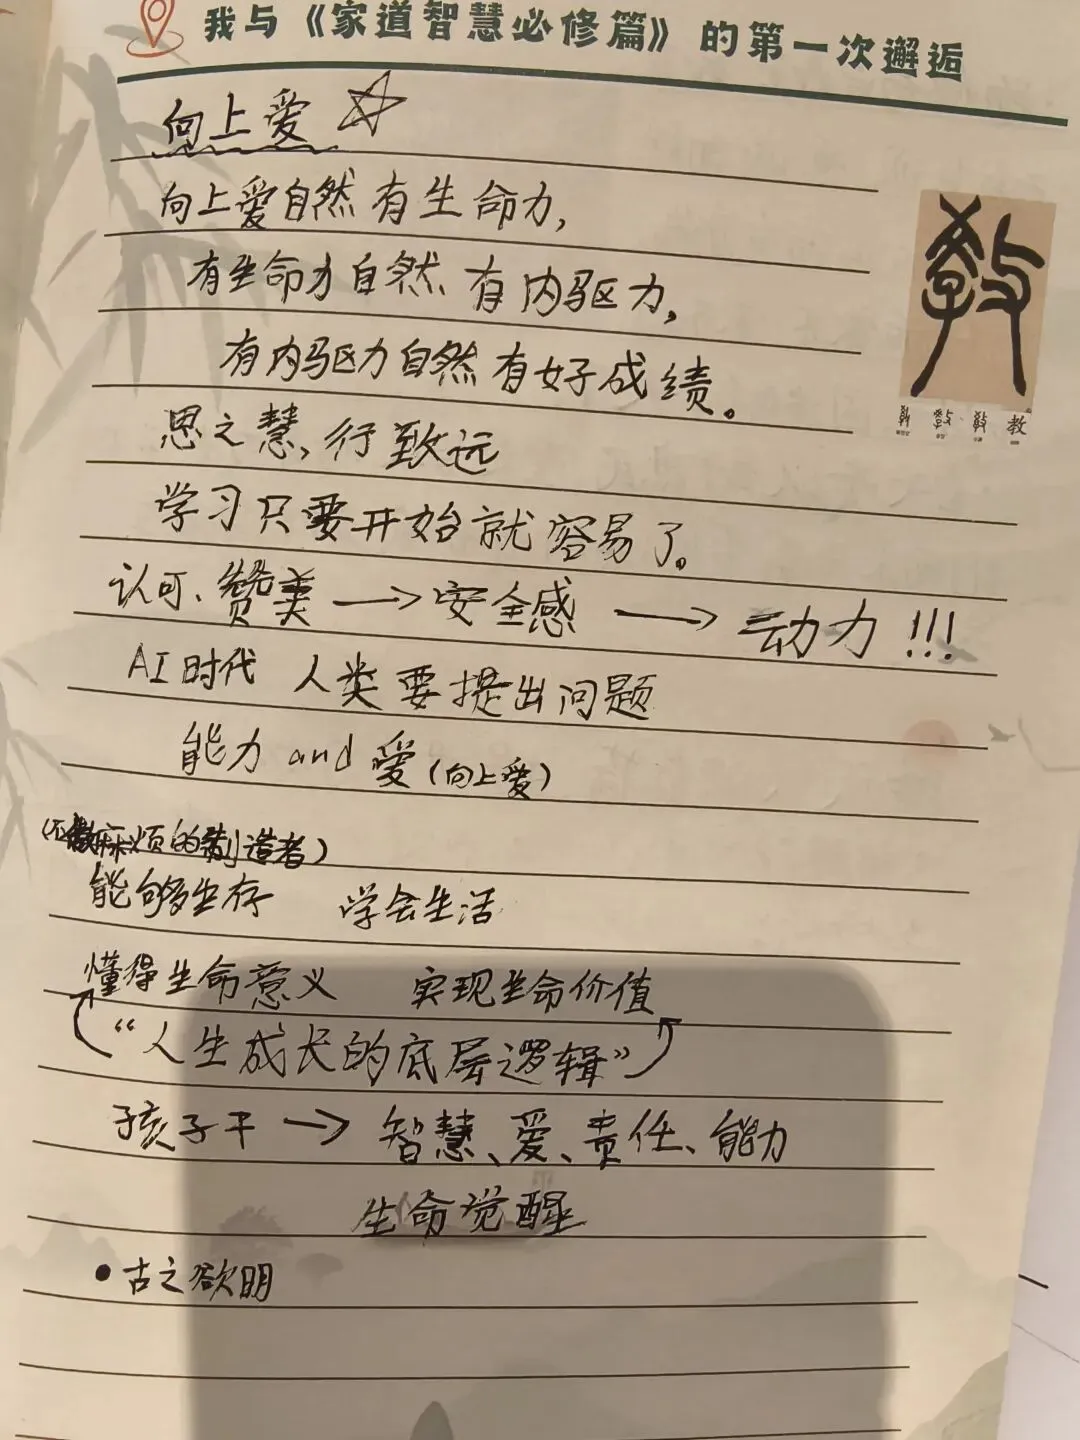 我与《家道智慧必修篇》的第一次邂逅
向上爱
向上爱自然有生命力，
有生命力自然有内驱力，
有内驱力自然有好成绩。
思之慧，行致远
学习只要开始就容易了。
认可、赞美→安全感→动力!!!
AI时代 人类要提出问题
能力 and 爱(向上爱)
(不做麻烦的制造者)
能够生存 学会生活
懂得生命意义 实现生命价值
“人生成长的底层逻辑”
孩子干→智慧、爱、责任、能力
生命觉醒
•古之欲明
教
教